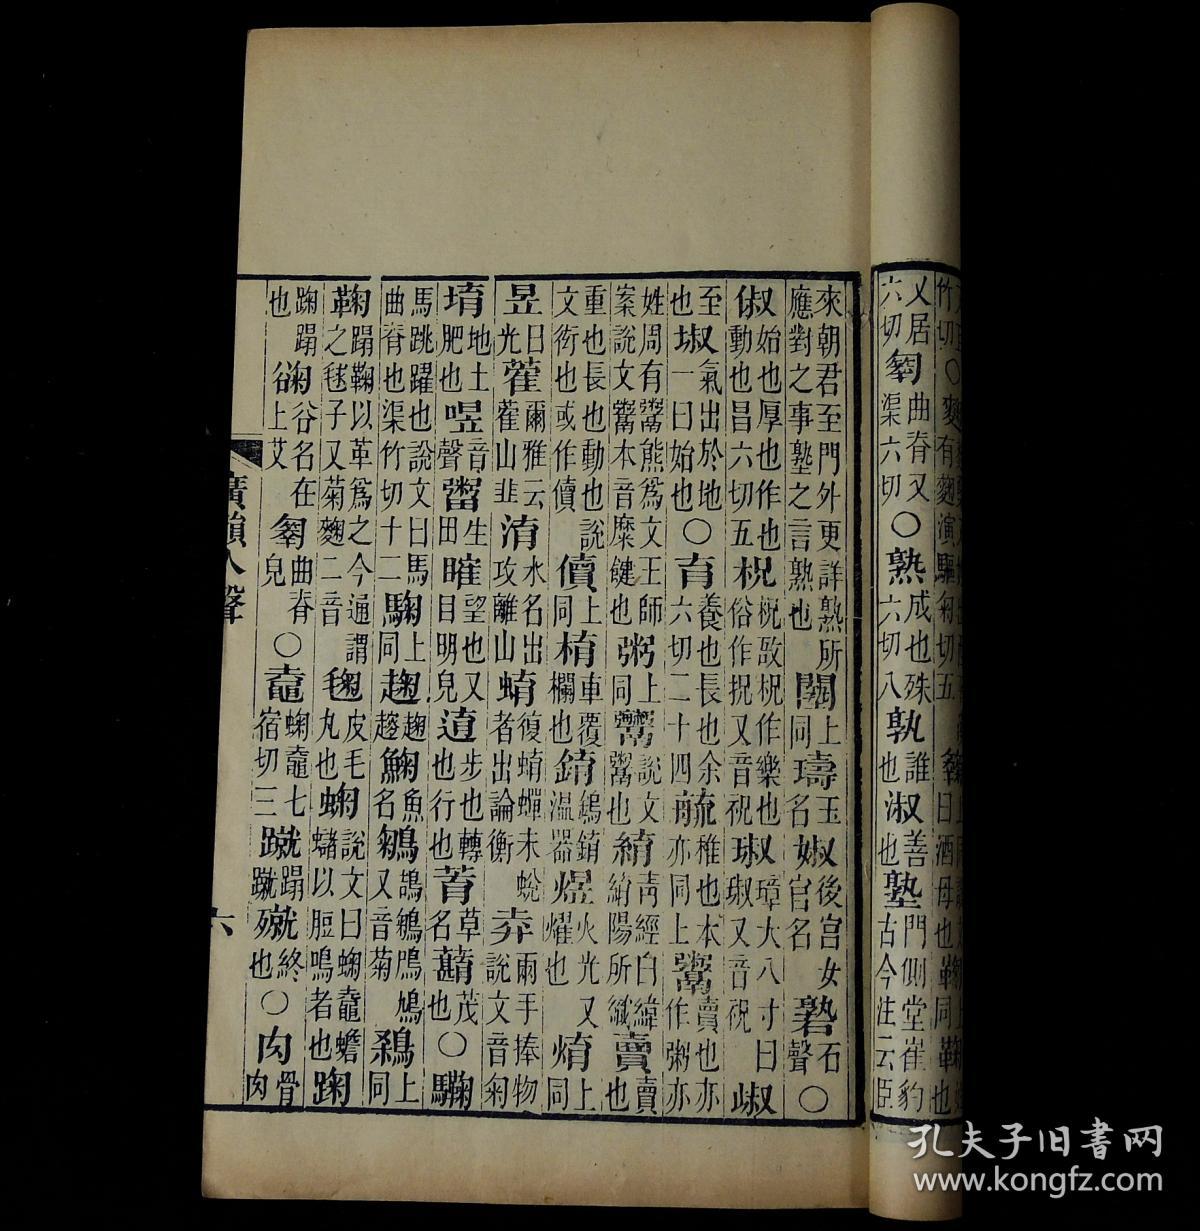 又居六切匑曲脊又渠六切○熟成也殊六切八孰誰也淑善也塾門側堂崔豹古今注云臣
來朝君至門外更詳熟所應對之事塾之言熟也 同上璹玉名婌後宮女官名 石聲○
俶始也厚也作也動也昌六切五柷柷敔柷作樂也俗作柷又音祝琡璋大八寸曰琡又音祝
至也埱氣出於地也一曰始也○育養也長也余六切二十四毓稚也亦同上鬻本賣也亦作粥亦
姓周有鬻熊爲文王師案說文鬻本音糜餰也粥同上 說文鬻也 靑經白緯 陽所織賣賣也
重也長也動也說文衒也或作儥儥同上棛車覆欄也錥鎢錥溫器煜火光又燿也焴同上
昱日光雚爾雅云雚山韭淯水名出攻離山蜟復蜟蟬未蛻者出論衡 兩手捧物說文音匊
堉地土肥也喅音聲 生田 望也又目明皃逳步也轉也行也 草名 茂也○驧
馬跳躍也說文曰馬曲脊也渠竹切十二 同上趜趜趢 魚名 又音菊 同上
鞠蹋鞠以革爲之今通謂之毬子又菊麴二音毱皮毛丸也 說文曰 鼀蟾蠩以脰鳴者也踘
踘蹋也 谷名在上艾匑曲脊皃○鼀 鼀七宿切三蹴蹋蹴殧終也○肉骨肉
廣韻入聲
六
孔夫子旧書网
www.kongfz.com